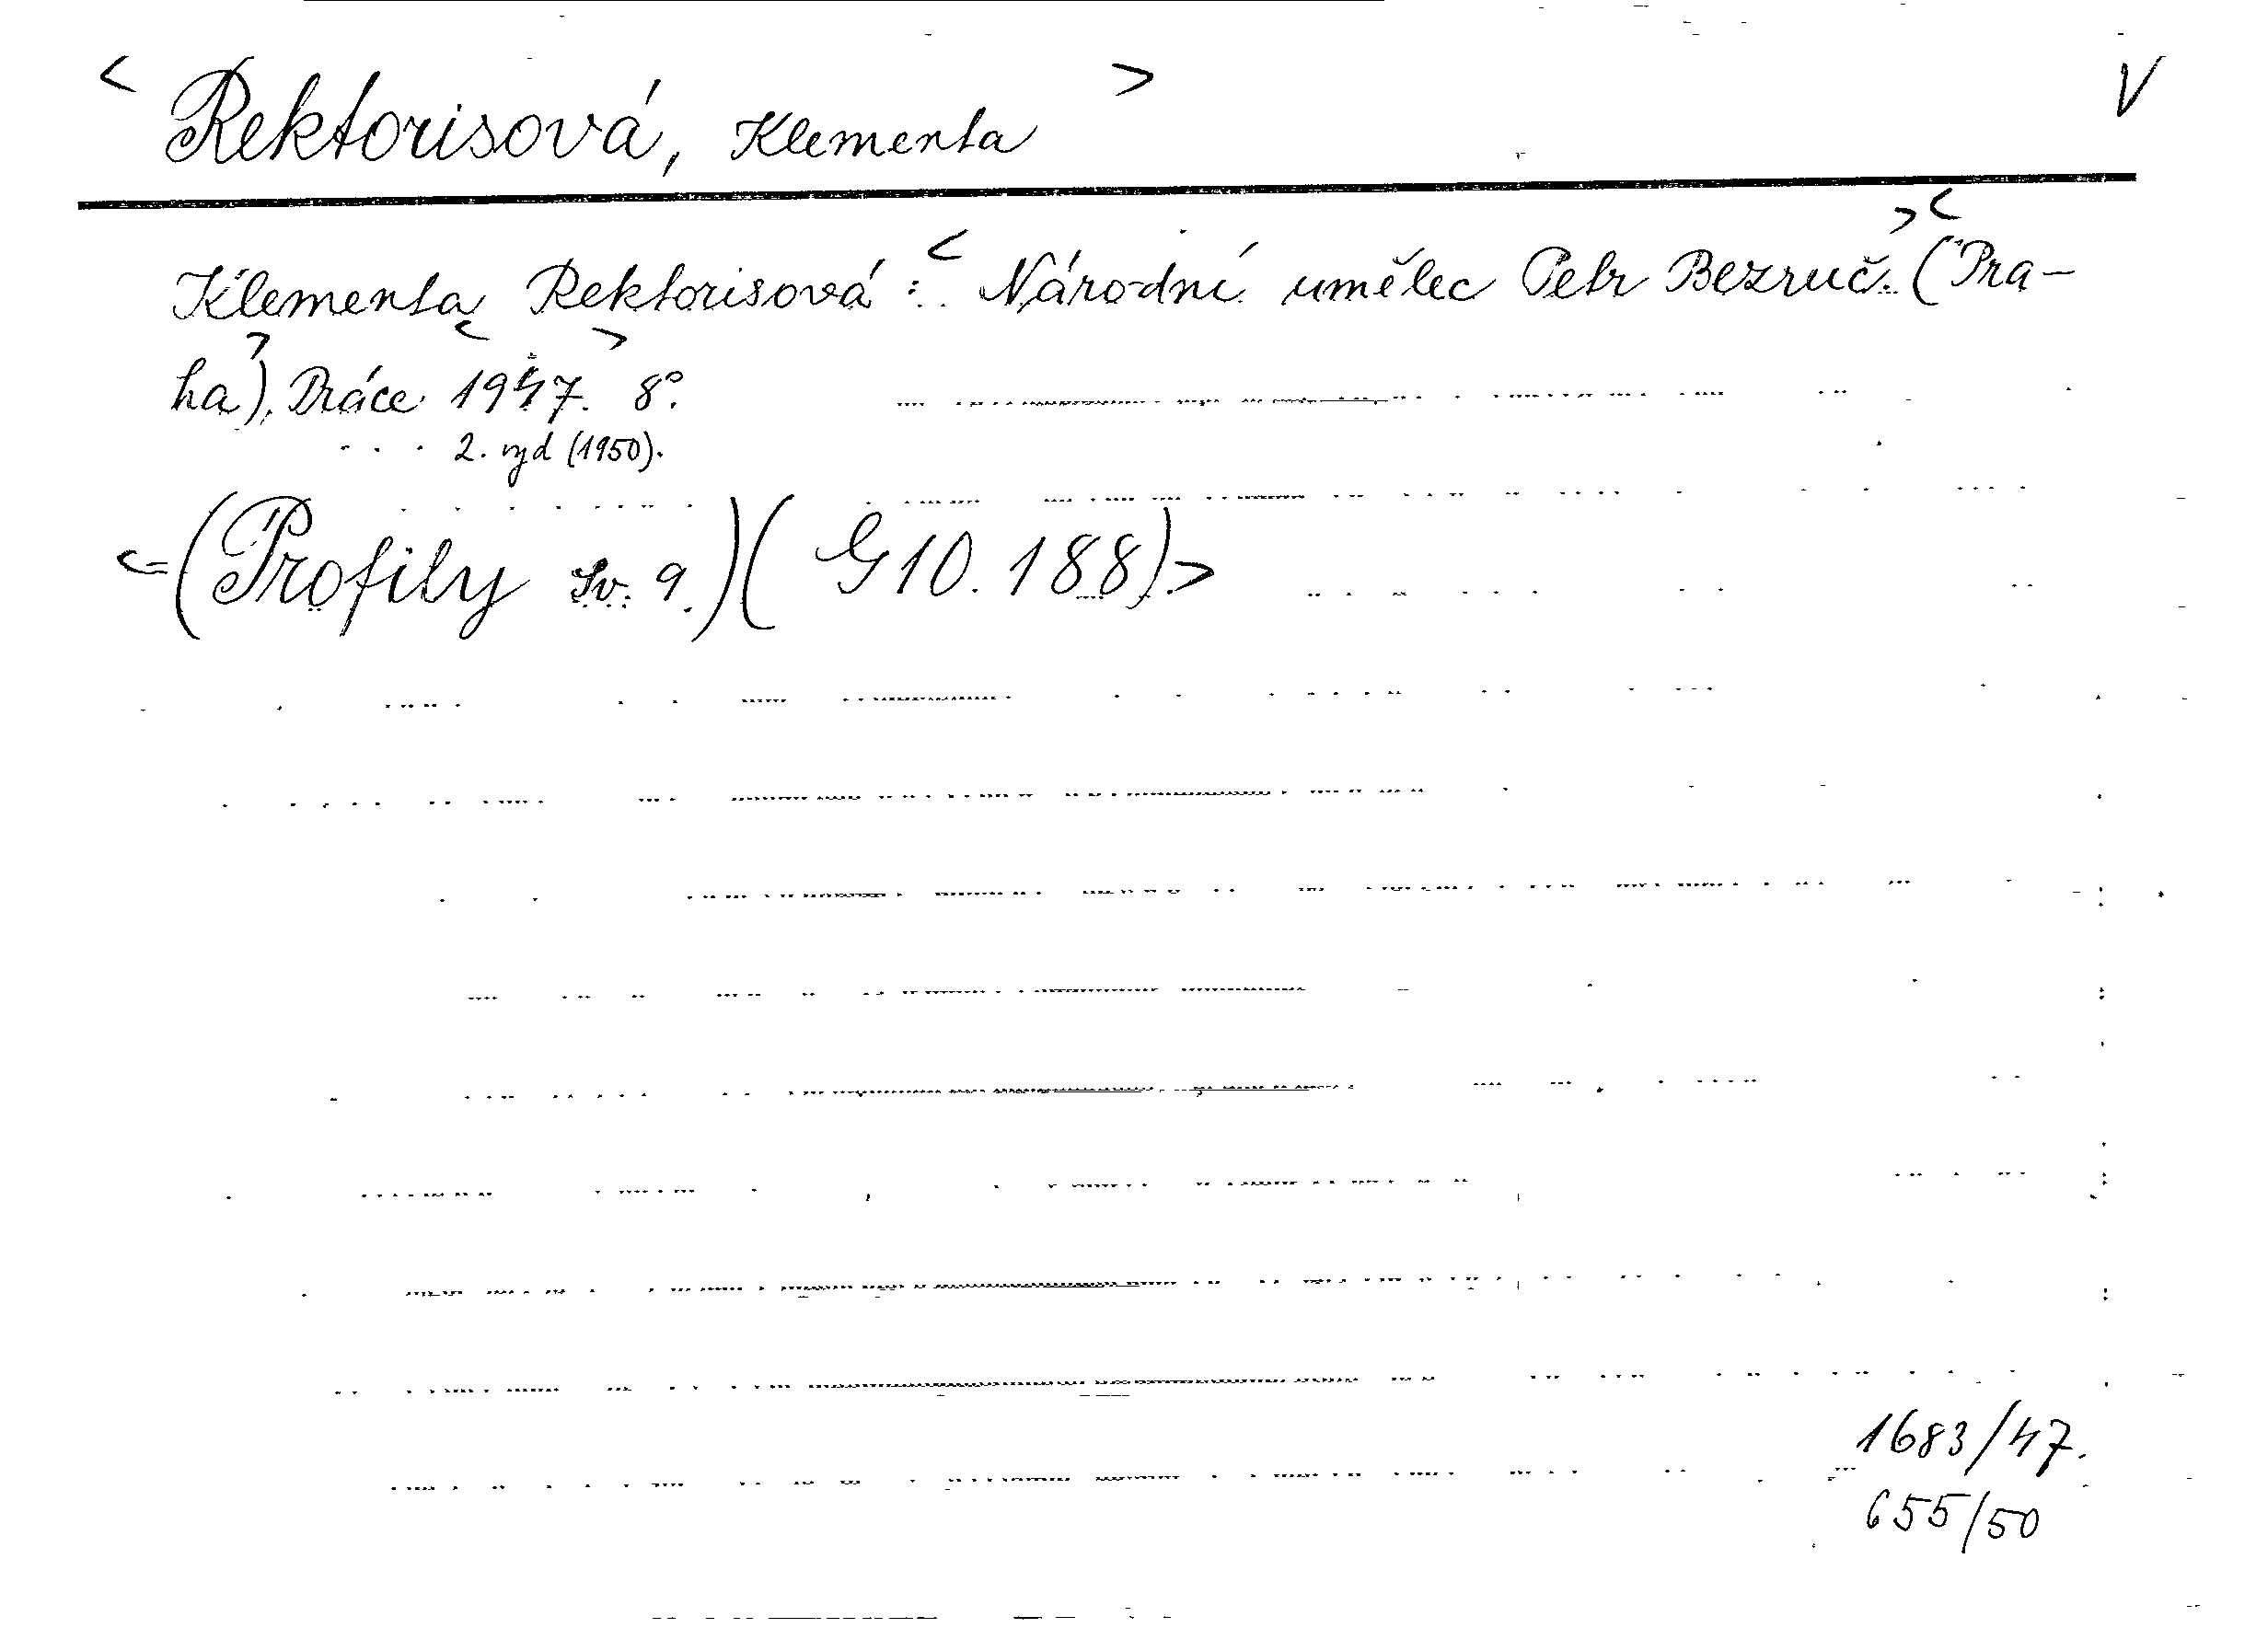 < Rektorisová, Klementa > V
Klementa Rektorisová: < Národní umělec Petr Bezruč. > < (Pra-
ha >), Práce < 1947. > 8°.
2. vyd (1950).
< (Profily sv. 9.) (G 10.188) >
1683/47.
655/50